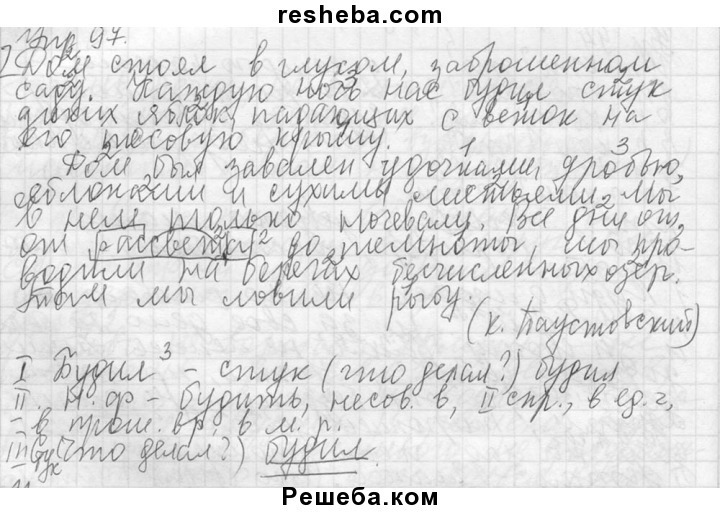 resheba.com
Упр 97.
Дом стоял в глухом, заброшенном
саду. Каждую ночь нас будил стук
диких яблок, падающих с веток на
его тесовую крышу.
Дом был завален удочками, дробью,
яблоками и сухими листьями. Мы
в нем только ночевали. Все дни от,
от рассвета до темноты, мы про-
водили на берегах бесчисленных озер.
Там мы ловили рыбу.
(К. Паустовский)
I Будил 3 - стук (что делал?) будил
II. Н. ф - будить, несов. в, II спр., в ед. ч,
- в прош. вр, в м. р.
III (что делал?) будил.
Решеба.ком